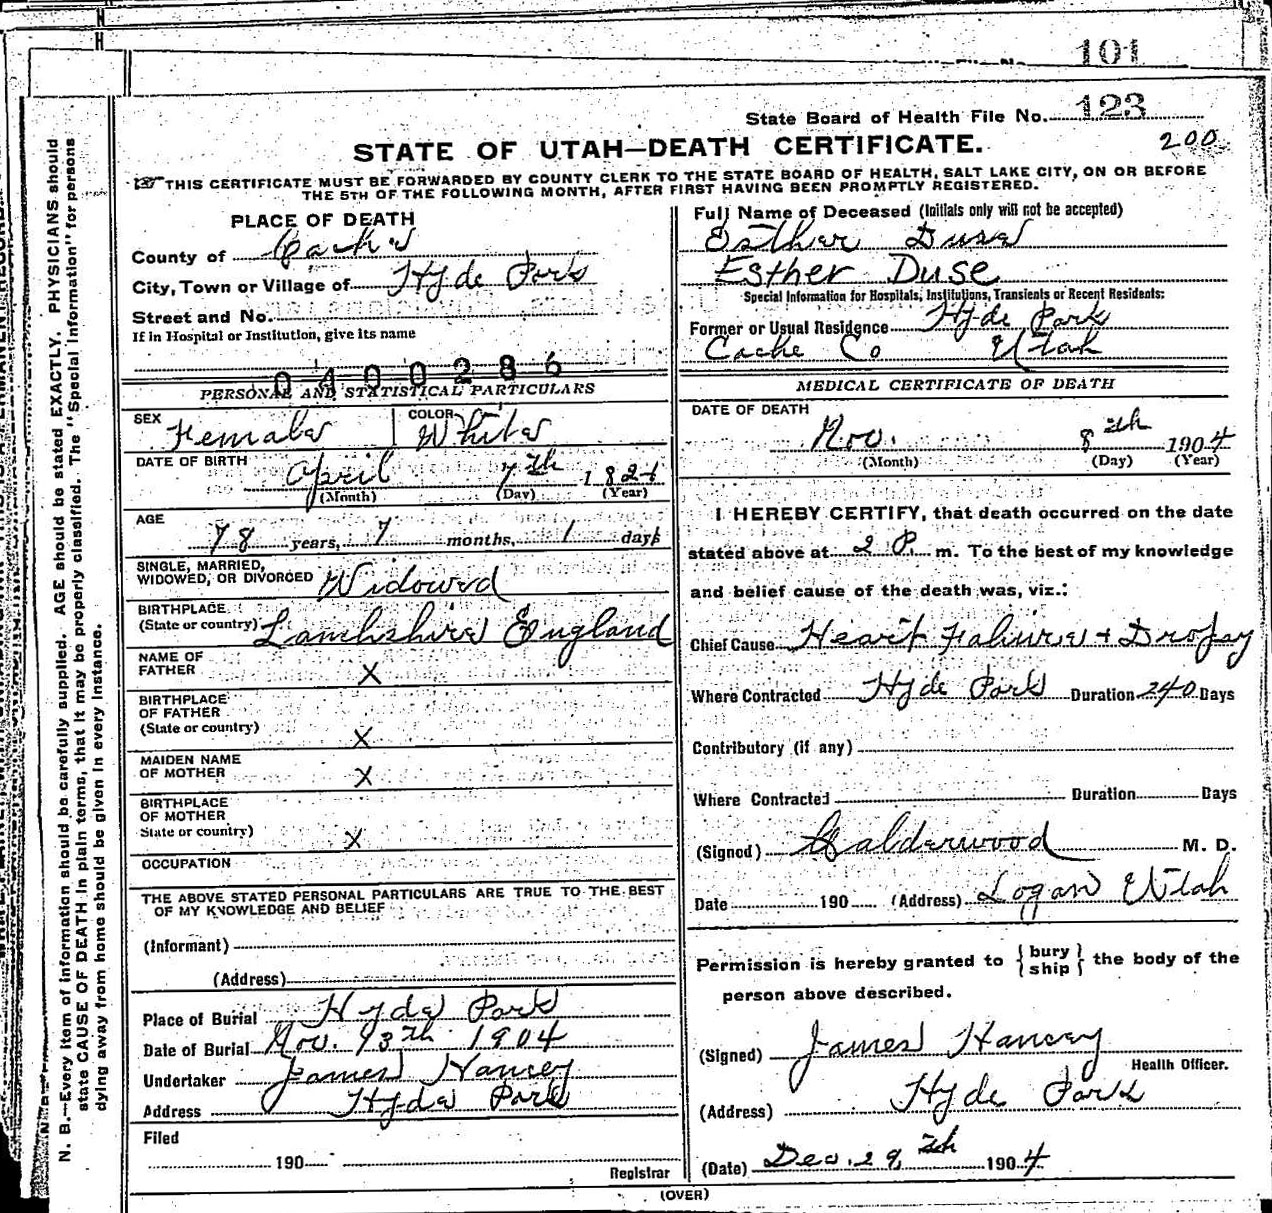 101
State Board of Health File No. 123
STATE OF UTAH—DEATH CERTIFICATE.
200
THIS CERTIFICATE MUST BE FORWARDED BY COUNTY CLERK TO THE STATE BOARD OF HEALTH, SALT LAKE CITY, ON OR BEFORE
THE 5TH OF THE FOLLOWING MONTH, AFTER FIRST HAVING BEEN PROMPTLY REGISTERED.
PLACE OF DEATH
County of Cache
City, Town or Village of Hyde Park
Street and No.
If in Hospital or Institution, give its name
0400286
PERSONAL AND STATISTICAL PARTICULARS
SEX Female COLOR White
DATE OF BIRTH April 7th 182
(Month) (Day) (Year)
AGE 78 years, 7 months, 1 days
SINGLE, MARRIED,
WIDOWED, OR DIVORCED Widowed
BIRTHPLACE
(State or country) England
NAME OF
FATHER X
BIRTHPLACE
OF FATHER
(State or country) X
MAIDEN NAME
OF MOTHER X
BIRTHPLACE
OF MOTHER
State or country) X
OCCUPATION
THE ABOVE STATED PERSONAL PARTICULARS ARE TRUE TO THE BEST
OF MY KNOWLEDGE AND BELIEF
(Informant)
(Address)
Place of Burial Hyde Park
Date of Burial Nov. 13th 1904
Undertaker James Hancey
Address Hyde Park
Filed
190
Registrar
Full Name of Deceased (Initials only will not be accepted)
Esther Duse
Esther Duse
Special Information for Hospitals, Institutions, Transients or Recent Residents:
Former or Usual Residence Hyde Park
Cache Co Utah
MEDICAL CERTIFICATE OF DEATH
DATE OF DEATH
Nov. 8th 1904
(Month) (Day) (Year)
I HEREBY CERTIFY, that death occurred on the date
stated above at 2 P. m. To the best of my knowledge
and belief cause of the death was, viz.:
Chief Cause Heart Failure + Dropsy
Where Contracted Hyde Park Duration 240 Days
Contributory (if any)
Where Contracted Duration Days
(Signed) Calderwood M. D.
Date 190 (Address) Logan Utah
Permission is hereby granted to { bury
ship } the body of the
person above described.
(Signed) James Hancey
Health Officer.
(Address) Hyde Park
(Date) Dec. 29th 1904
(OVER)
N. B.—Every item of information should be carefully supplied. AGE should be stated EXACTLY. PHYSICIANS should
state CAUSE OF DEATH in plain terms, that it may be properly classified. The "Special Information" for persons
dying away from home should be given in every instance.